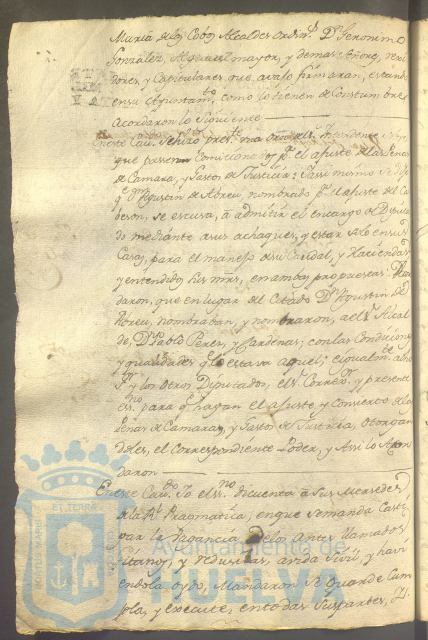 Maria de los Cobos Alcaldes ordin.s D.n Geronimo
Gonzalez, Alguacil mayor, y demas Señores, rexi
dores, y Capitulares que avajo firmaran, estando
en su Ayuntam.to como lo tienen de Costumbre
Acordaron lo Siguiente
En este Cav.do se hizo pres.te una orden del S.r Intendente
que pasen Comisionados p.a el ajuste de las Penas
de Camara, y Gastos de Justicia; y asi mismo
q.e D.n Agustin de Abreu, nombrado p.a el ajuste del Ca
beson, se escusa, a admitir el encargo de Diputa
do mediante a sus achaques, y estar solo en su
Casa, para el manejo de su Caudal, y Haciendas
y entendido sus mrds, en ambas propuestas: Acor
daron, que en lugar del Citado D.n Agustin de
Abreu, nombraban, y nombraron, a el S.r Alcal
de D.n Pablo Perez, y Cardenas; con las Condiciones
y qualidades q.e lo estava aquel; e igualm.te
y los otros Diputados, el S.r Correx.or y presente
ess.no para q.e hagan el ajuste y Convenio de las
Penas de Camaras, y Gastos de Justicia, otorgan
doles, el Correspondiente Poder, y Assi lo Acor
daron
En este Cav.do Yo el ess.no di cuenta a Sus Mercedes
de la R.l Pragmatica, en que se manda Casti
gar la Vagancia, de los Antes llamados
Gitanos, y reducirlos, a vida Sivil, y havi
endola oydo, Mandaron Se Guarde Cum
pla, y execute, en todas Sus partes,
Ayuntamiento de
HUELVA